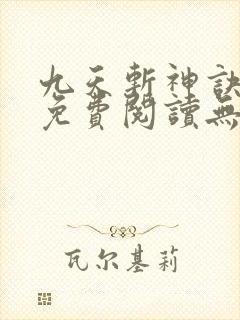 九天斬神訣
免費閱讀無
瓦尔基莉